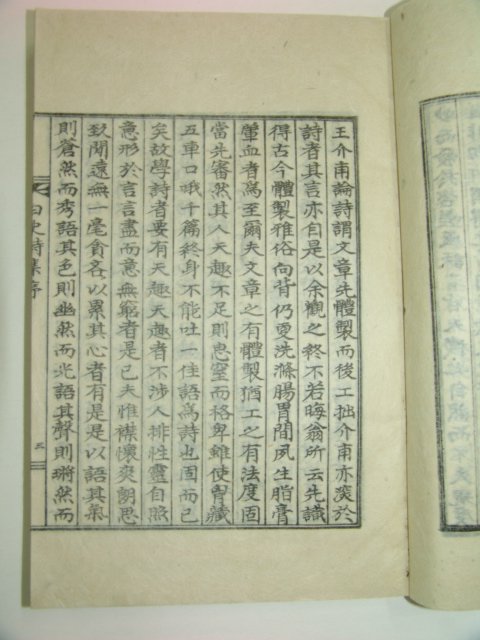 王介甫論詩謂文章先體製而後工拙介甫亦深於
詩者其言亦自是以余觀之終不若晦翁所云先識
得古今體製雅俗向背仍更洗滌腸胃間夙生脂膏
葷血者爲至爾夫文章之有體製猶工之有法度固
當先審然其人天趣不足則思窒而格卑雖使胷藏
五車口哦千篇終身不能吐一佳語爲詩也固而已
矣故學詩者要有天趣天趣者不涉人排性靈自照
意形於言言盡而意無窮者是已夫雅襟懷爽朗思
致閒遠無一毫貪吝以累其心者有是是以語其氣
則蒼然而秀語其色則幽然而光語其聲則鏘然而
白史詩集序
三